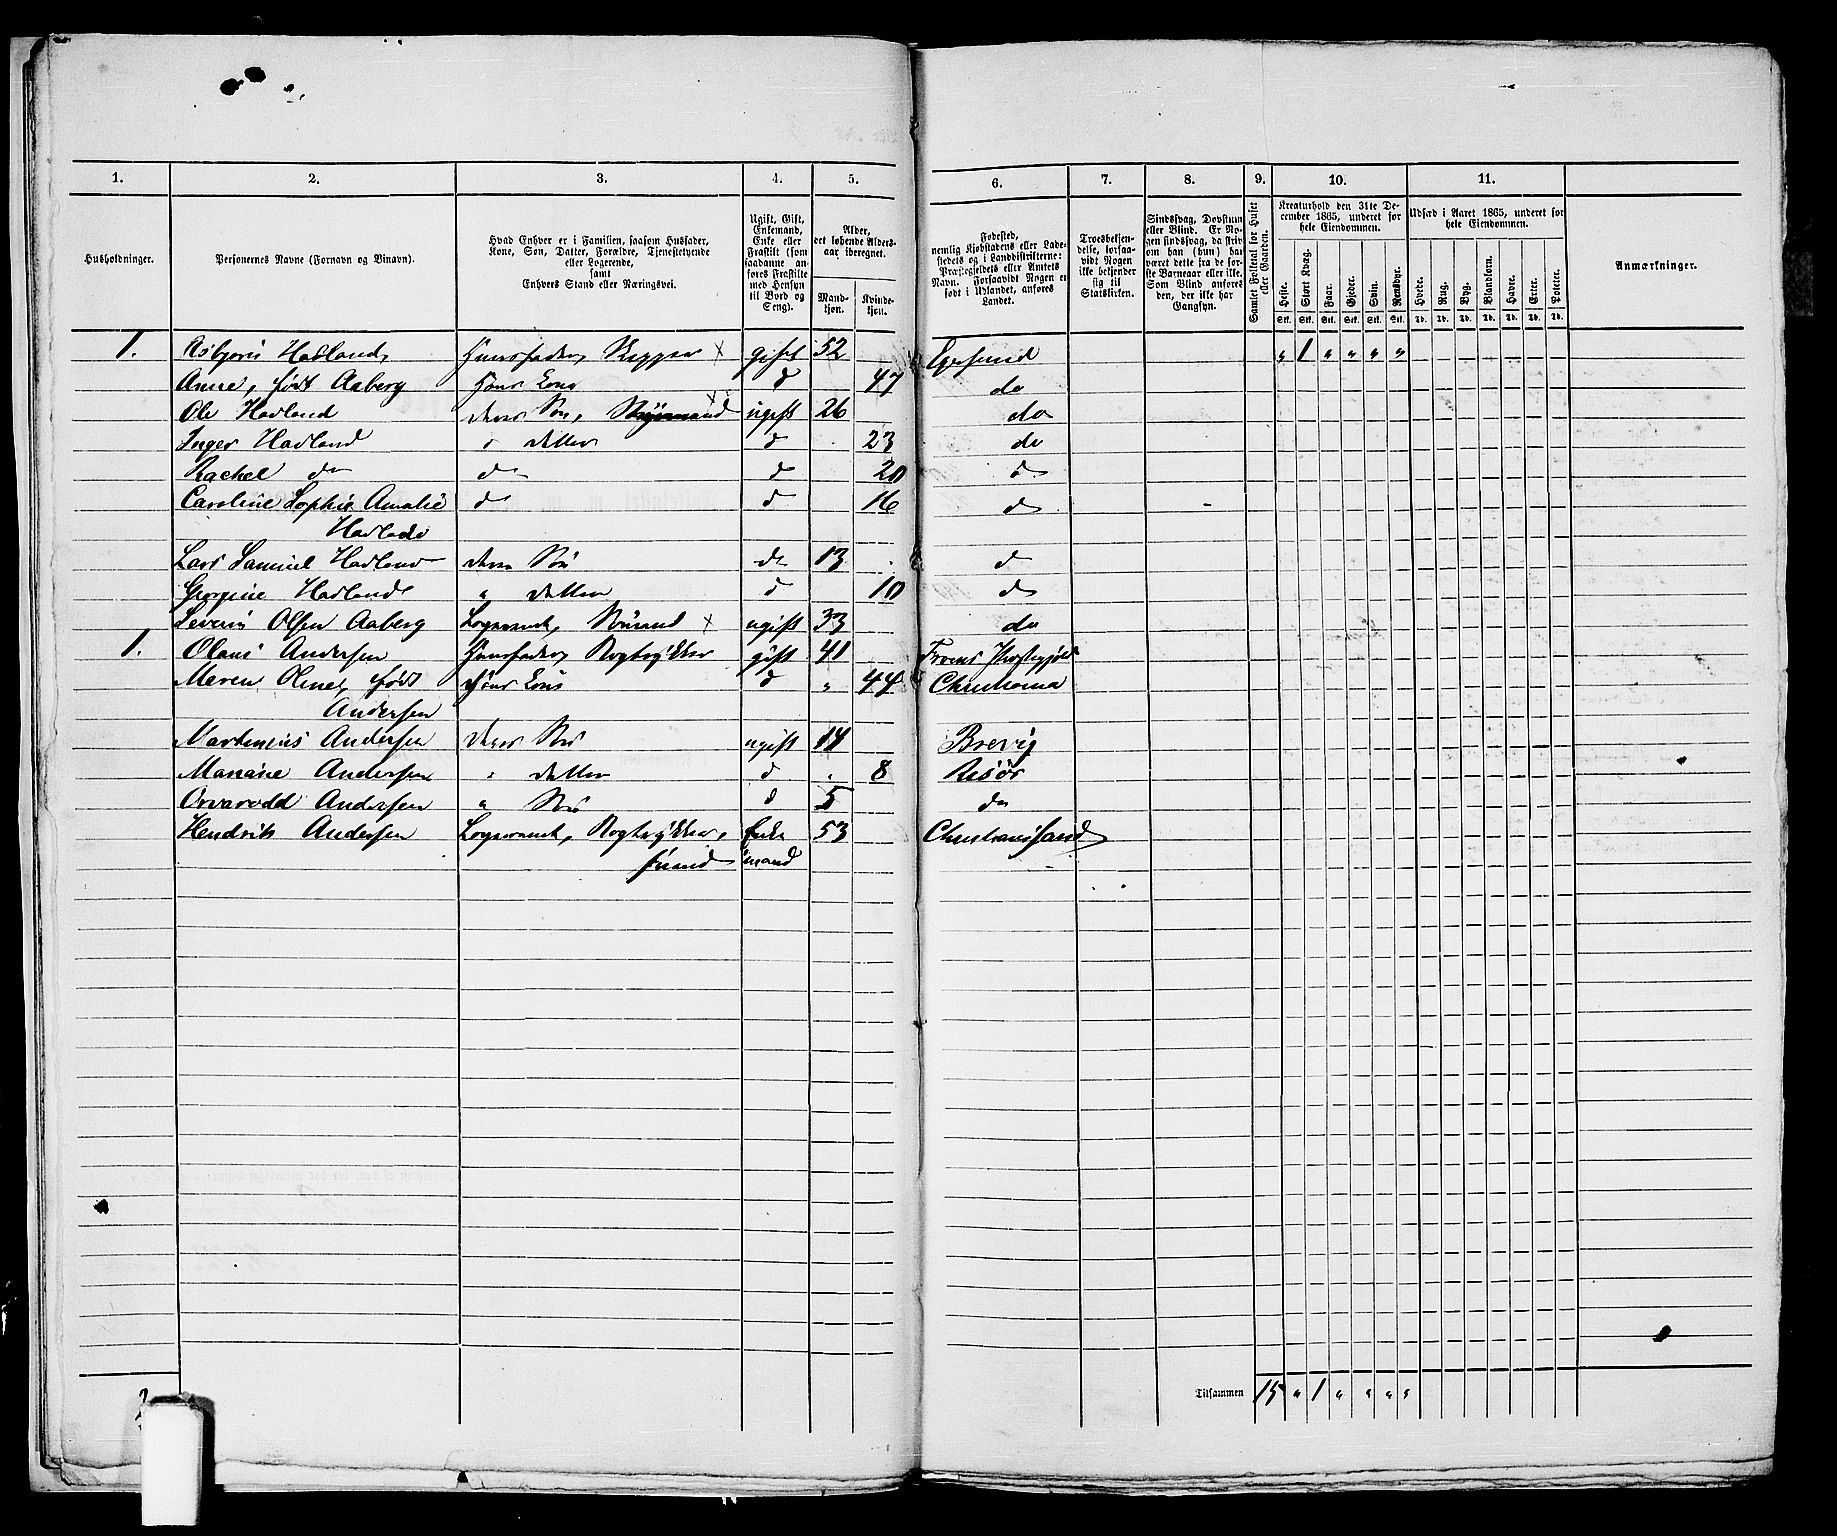 1. 2. 3. 4. 5. 6. 7. 8. 9. 10. 11.
Husholdninger.
Personernes Navne (Fornavn og Binavn).
Hvad Enhver er i Familien, saasom Husfader,
Kone, Søn, Datter, Forældre, Tjenestetyende
eller Logerende,
samt
Enhvers Stand eller Næringsvei.
Ugift, Gift,
Enkemand,
Enke eller
Fraskilt (som
saadanne an-
føres Fraskilte
med Hensyn
til Bord og
Seng).
Alder,
det løbende Alders-
aar iberegnet.
Mand-
kjøn.
Kvinde-
kjøn.
Fødested,
nemlig Kjøbstadens eller Lade-
stedets og i Landdistrikterne:
Præstegjeldets eller Amtets
Navn. Forsaavidt Nogen er
født i Udlandet, anføres
Landet.
Troesbekjen-
delse, forsaa-
vidt Nogen
ikke bekjender
sig til
Statskirken.
Sindssvag, Døvstum
eller Blind. Er No-
gen sindssvag, da hvis
om han (hun) har
været dette fra de før-
ste Barneaar eller ikke.
Som Blind anføres
den, der ikke har
Gangsyn.
Samlet Folketal for Huset
eller Gaarden.
Kreaturhold den 31te De-
cember 1865, underet for
hele Eiendommen.
Heste. Stort Kvæg. Faar. Gjeder. Svin. Rensdyr.
Stk. Stk. Stk. Stk. Stk. Stk.
Udsæd i Aaret 1865, underet for
hele Eiendommen.
Hvede. Rug. Byg. Blandkorn. Havre. Erter. Poteter.
Td. Td. Td. Td. Td. Td. Td.
Anmærkninger.
1. Asbjørn Hadland, Huusfader, Skipper x gift 52 Egersund " 1 " " " "
Anne, født Aaberg Hans Kone d 47 do
Ole Hadland deres Søn, Styrmand x ugift 26 do
Inger Hadland " Datter d 23 do
Rachel do do d 20 d
Caroline Sophie Amalie d d 16 d
Hadland
Lars Samuel Hadland deres Søn do 13 d
Georgine Hadland " Datter d 10 d
Severin Olsen Aaberg Logerende, x ugift 33 do
1. Olaus Andersen Huusfader, Rogtrykker gift 41 Præstegjeld
Maren Oline, født Hans Kone d " 44 Christiania
Andersen
Martinius Andersen deres Søn ugift 14 Brevig
Mariane Andersen " Datter d " 8 Risør
Andersen " Søn d 5 do
Hendrik Andersen Logerende, Rogtrykker, Enke 53 Christianssand
svend mand
2 Tilsammen 15 " 1 " " " "